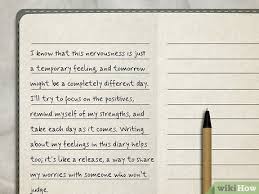 I know that this nervousness is just
a temporary feeling, and tomorrow
might be a completely different day.
I'll try to focus on the positives,
remind myself of my strengths, and
take each day as it comes. Writing
about my feelings in this diary helps
too; it's like a release, a way to share
my worries with someone who won't
judge.
wikiHow